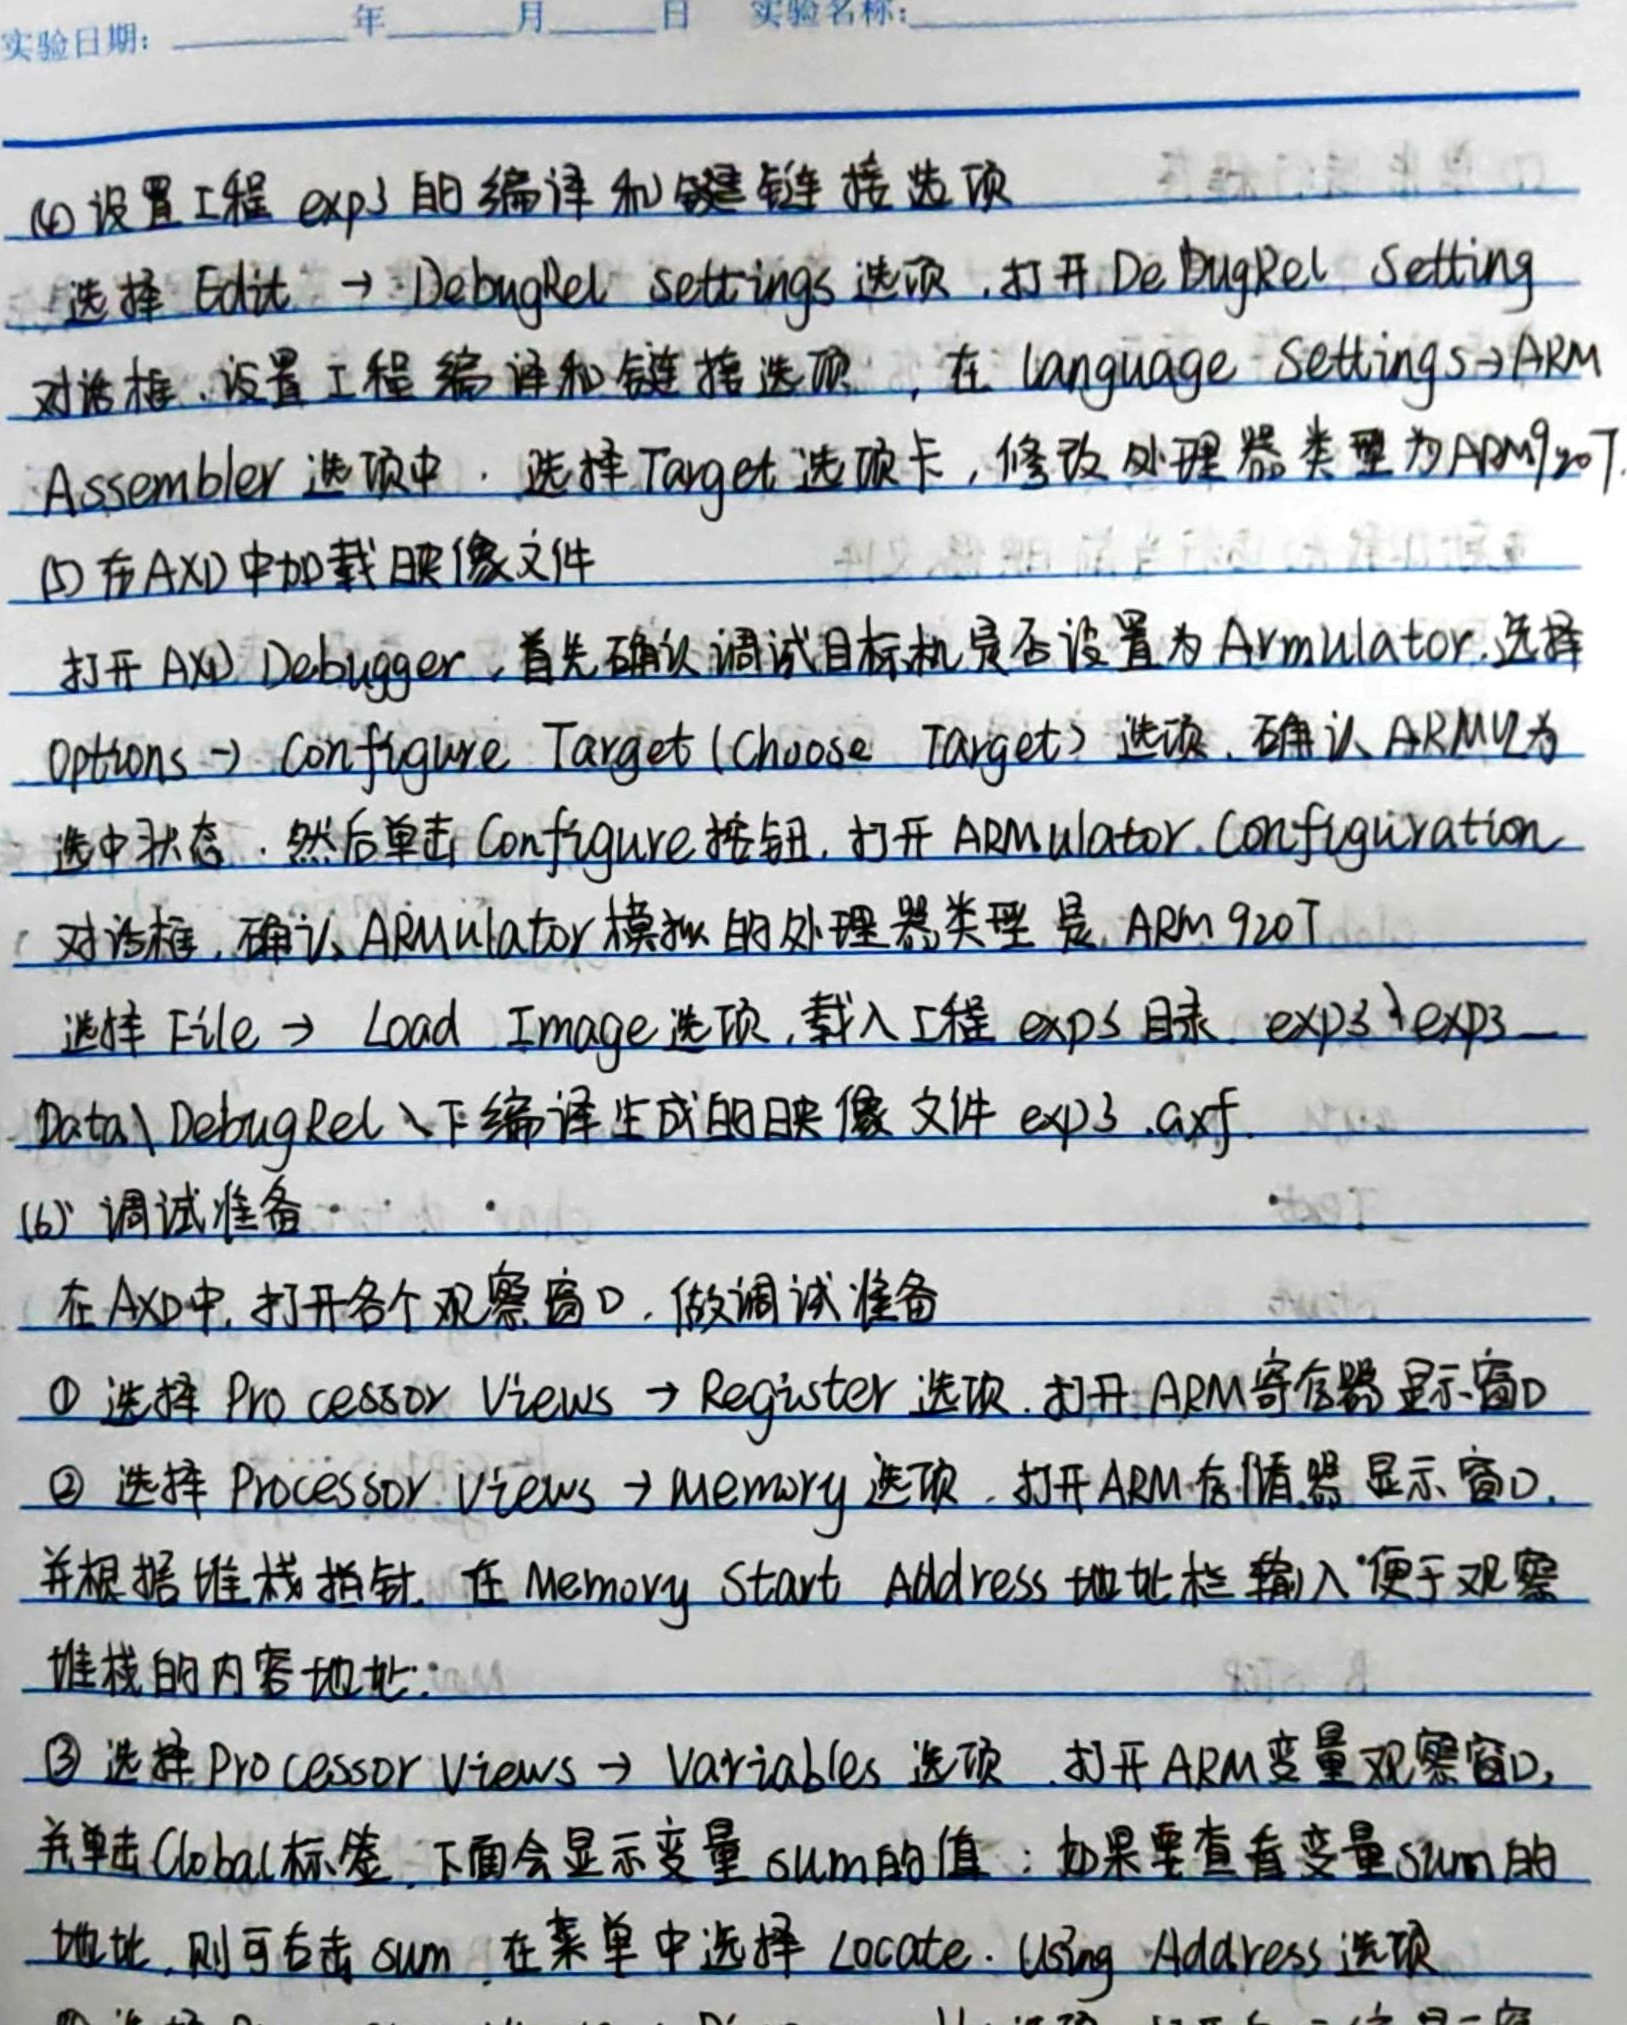 实验日期: 年 月 日 实验名称:
(4) 设置工程 exp3 的编译和链接选项
选择 Edit → DebugRel settings 选项,打开 DeBugRel Setting
对话框,设置工程编译和链接选项,在 language Settings→ARM
Assembler 选项中,选择 Target 选项卡,修改处理器类型为ARM920T.
(5) 在AXD中加载映像文件
打开 AXD Debugger,首先确认调试目标机是否设置为 Armulator.选择
Options → Configure Target (Choose Target) 选项,确认 ARMUL为
选中状态,然后单击 Configure 按钮,打开 ARMulator Configuration
对话框,确认 ARMulator 模拟的处理器类型是 ARM 920T
选择 File → Load Image 选项,载入工程 exp3 目录 exp3\exp3_
Data\DebugRel\下编译生成的映像文件 exp3.axf.
(6) 调试准备
在AXD中,打开各个观察窗口,做调试准备
① 选择 Processor Views → Register 选项,打开 ARM寄存器显示窗口
② 选择 Processor Views → Memory 选项,打开ARM存储器显示窗口,
并根据堆栈指针,在 Memory Start Address 地址栏输入便于观察
堆栈的内容地址;
③ 选择 Processor Views → Variables 选项,打开ARM变量观察窗口,
并单击Global标签,下面会显示变量 sum的值;如果要查看变量sum的
地址,则可右击 sum,在菜单中选择 Locate. Using Address 选项